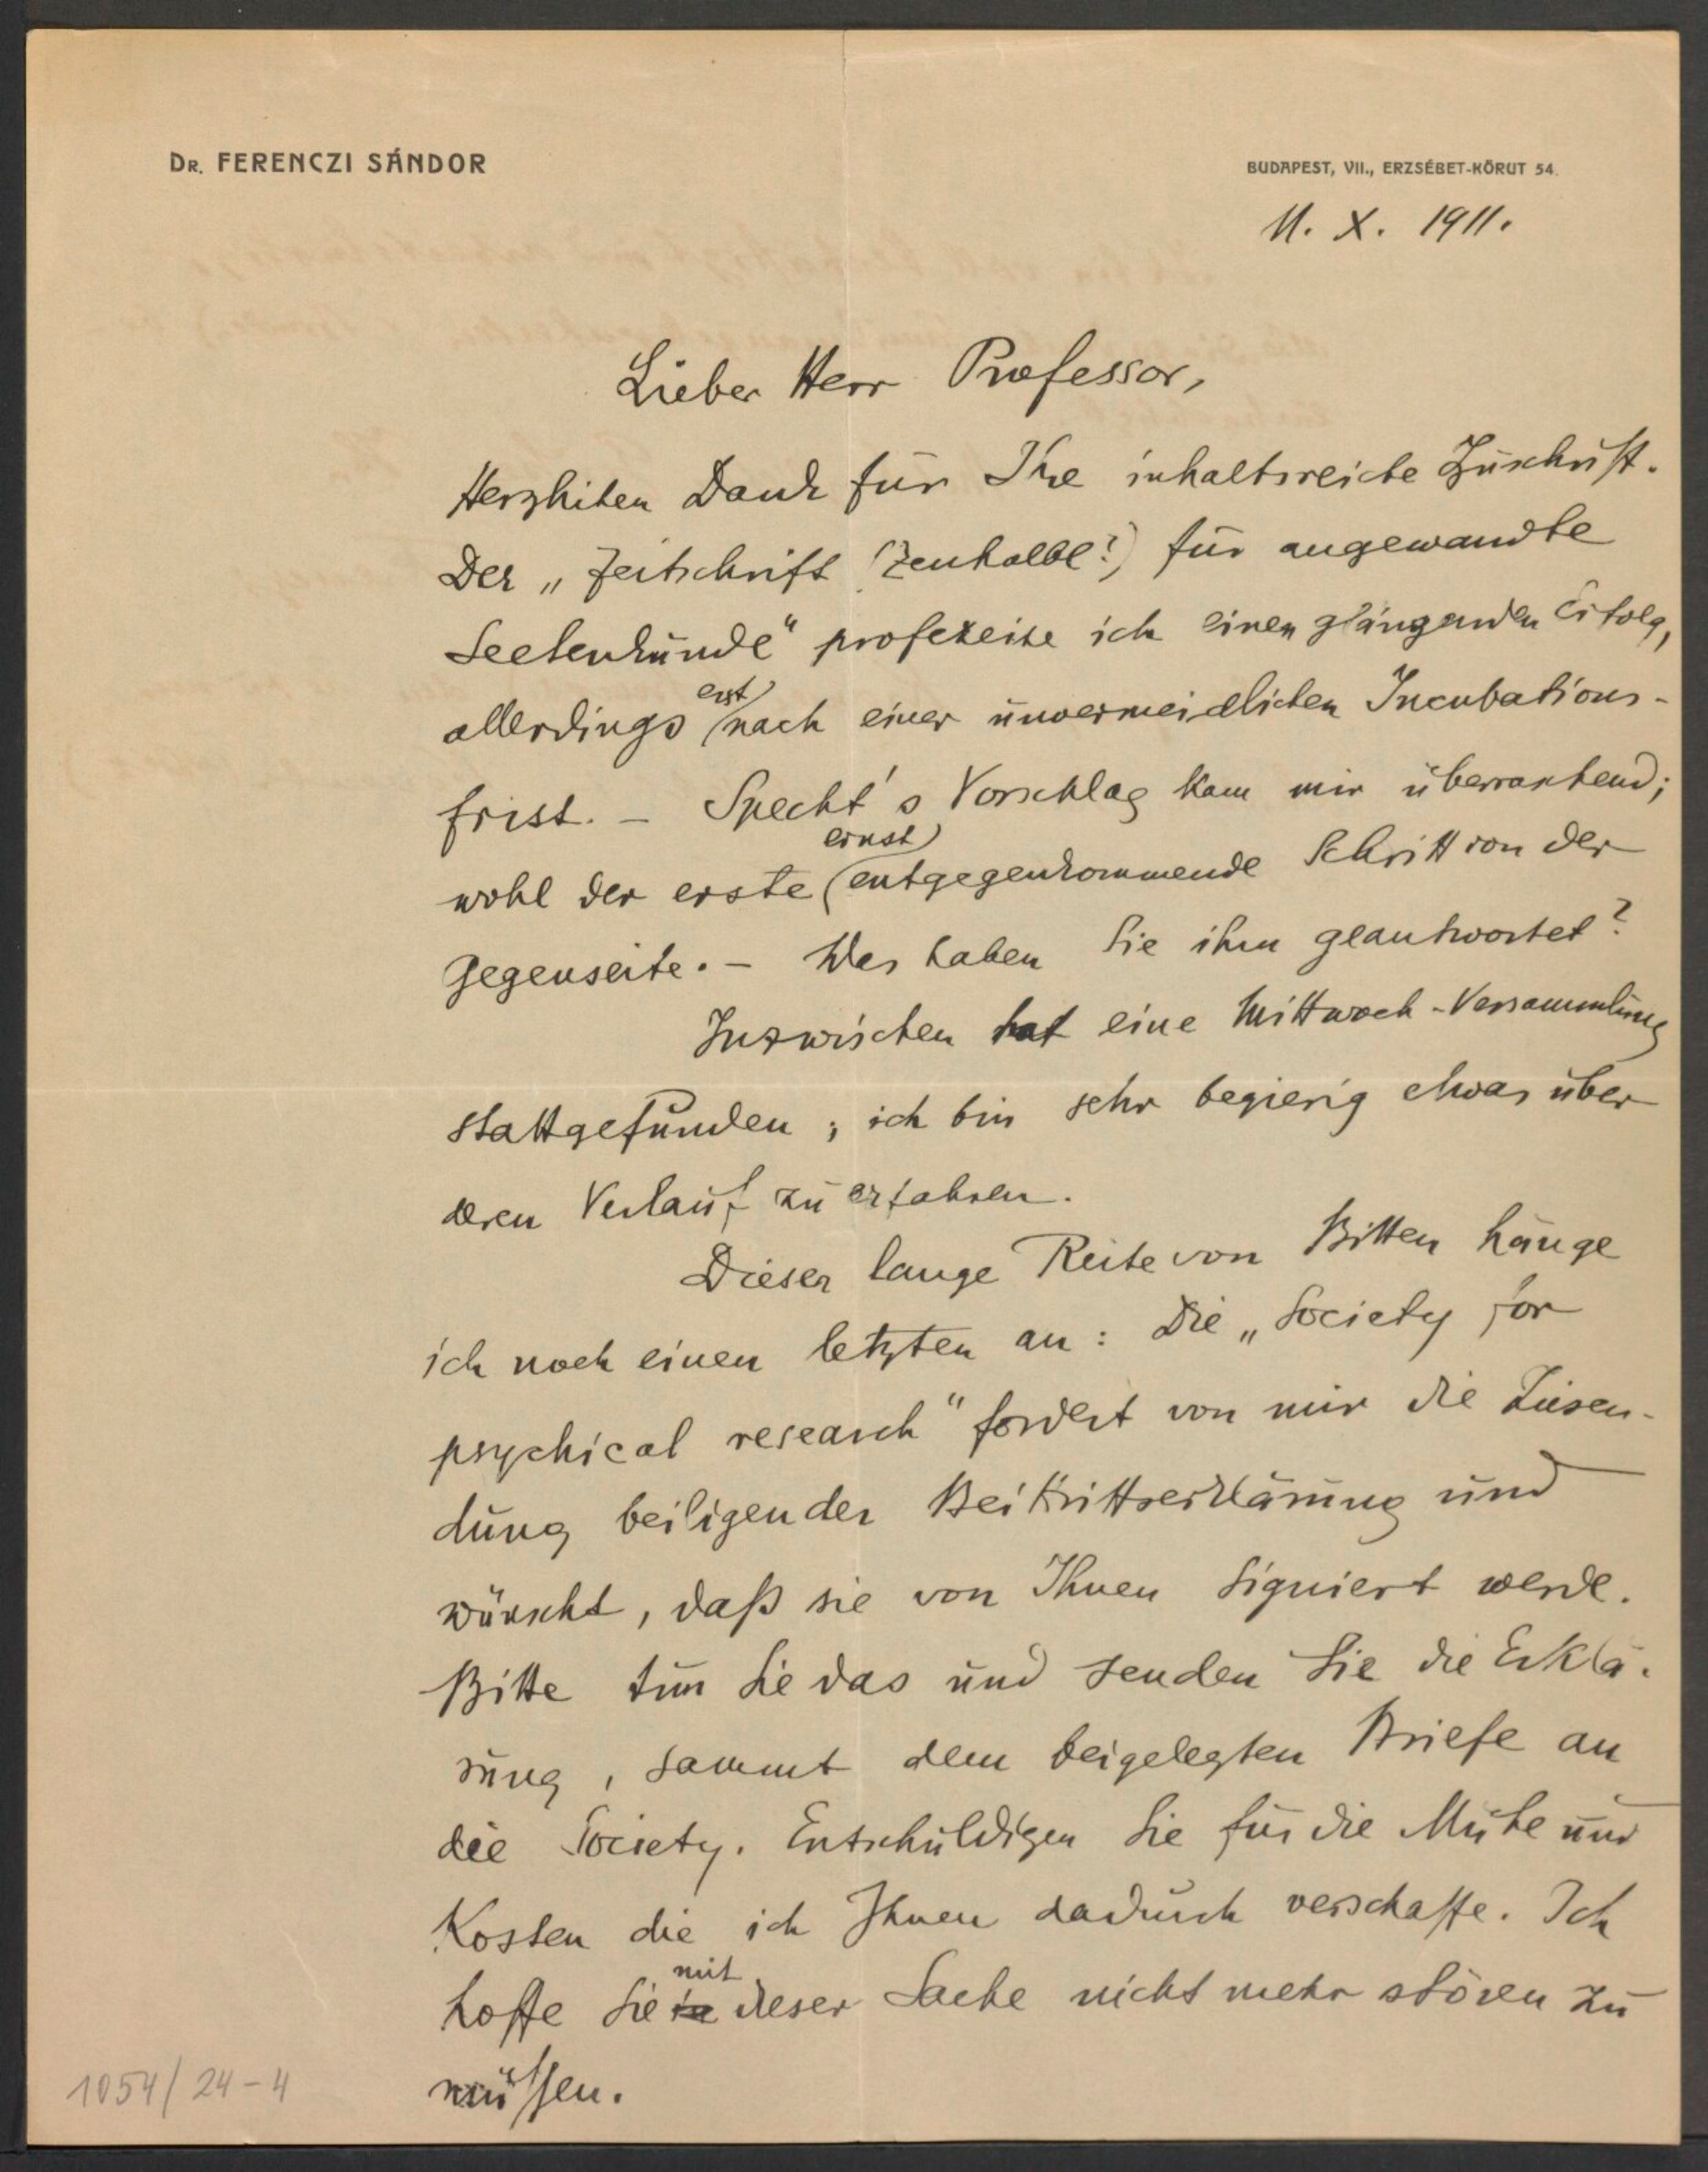 DR. FERENCZI SÁNDOR
BUDAPEST, VII., ERZSÉBET-KÖRUT 54.
11. X. 1911.
Lieber Herr Professor,
Herzlichen Dank für Ihre inhaltsreiche Zuschrift.
Der „Zeitschrift (Zentralbl?) für angewandte
Seelenkunde" profezeihe ich einen glänzenden Erfolg,
allerdings erst nach einer unvermeidlichen Incubations-
frist. – Specht's Vorschlag kam mir überraschend;
wohl der erste ernst entgegenkommende Schritt von der
Gegenseite. – Was haben Sie ihm geantwortet?
Inzwischen hat eine Mittwoch-Versammlung
stattgefunden; ich bin sehr begierig etwas über
deren Verlauf zu erfahren.
Dieser lange Reihe von Bitten hänge
ich noch einen letzten an: Die „Society for
psychical research" fordert von mir die Zusen-
dung beiligender Beitrittserklärung und
wünscht, daß sie von Ihnen signiert werde.
Bitte tun Sie das und senden Sie die Erklä-
rung, sammt dem beigelegten Briefe an
die Society. Entschuldigen Sie für die Mühe und
Kosten die ich Ihnen dadurch verschaffe. Ich
hoffe Sie in mit dieser Sache nicht mehr stören zu
müssen.
1054/24-4